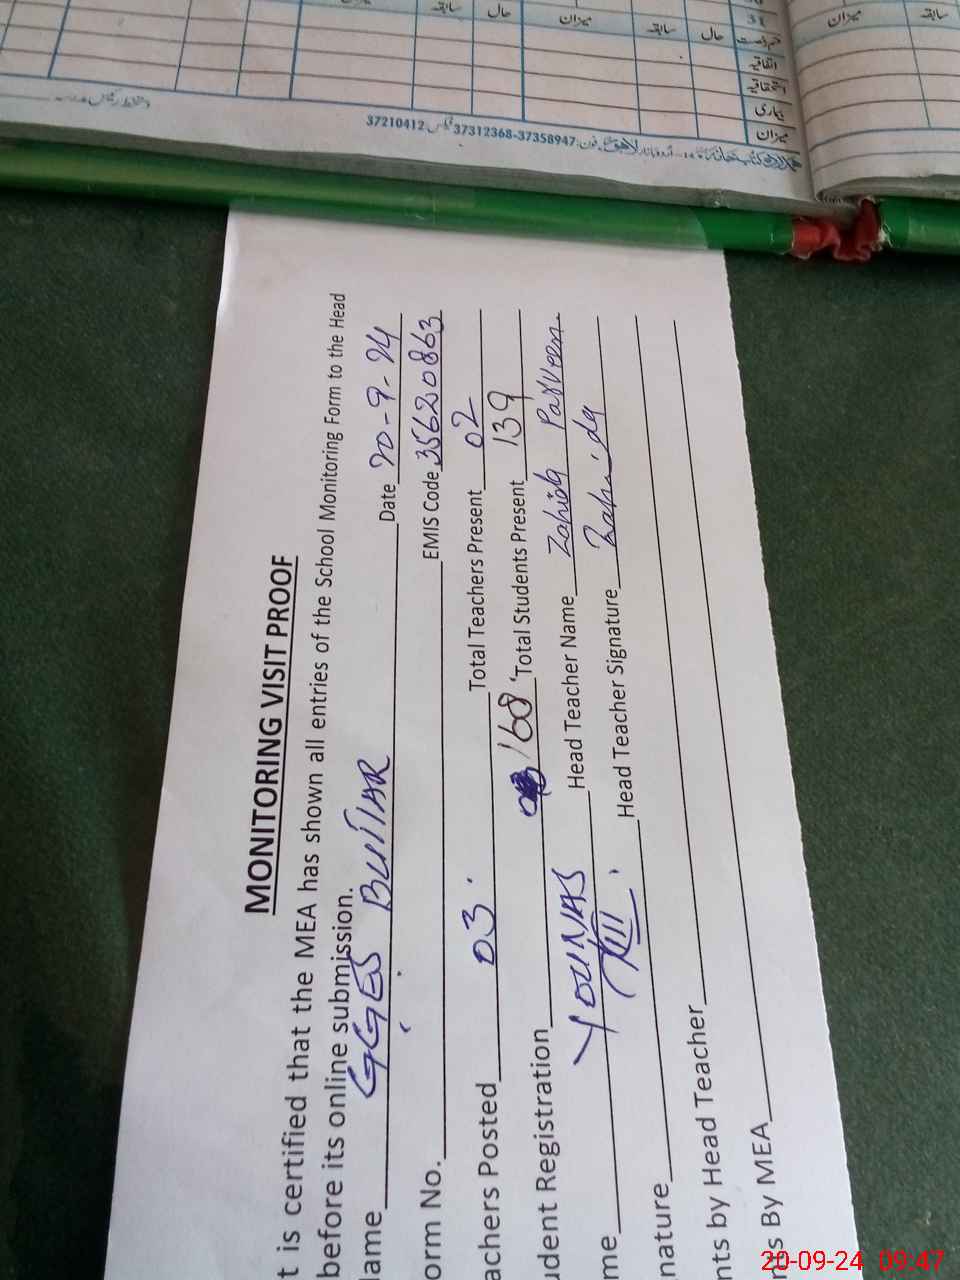 31
میزان
سابقہ
حال
میزان
سابقہ
حال
میزان
سابقہ
اتفاقیہ
استحقاقیہ
بیماری
میزان
فون: 37312368-37358947 فیکس 37210412
MONITORING VISIT PROOF
t is certified that the MEA has shown all entries of the School Monitoring Form to the Head
before its online submission.
lame GGES BUTTAR Date 20-9-24
orm No. EMIS Code 35620863
achers Posted 03 Total Teachers Present 02
udent Registration 168 Total Students Present 139
me YOUNAS Head Teacher Name Zahida Parveen
nature Head Teacher Signature Zahida
nts by Head Teacher
nts By MEA
20-09-24 09:47